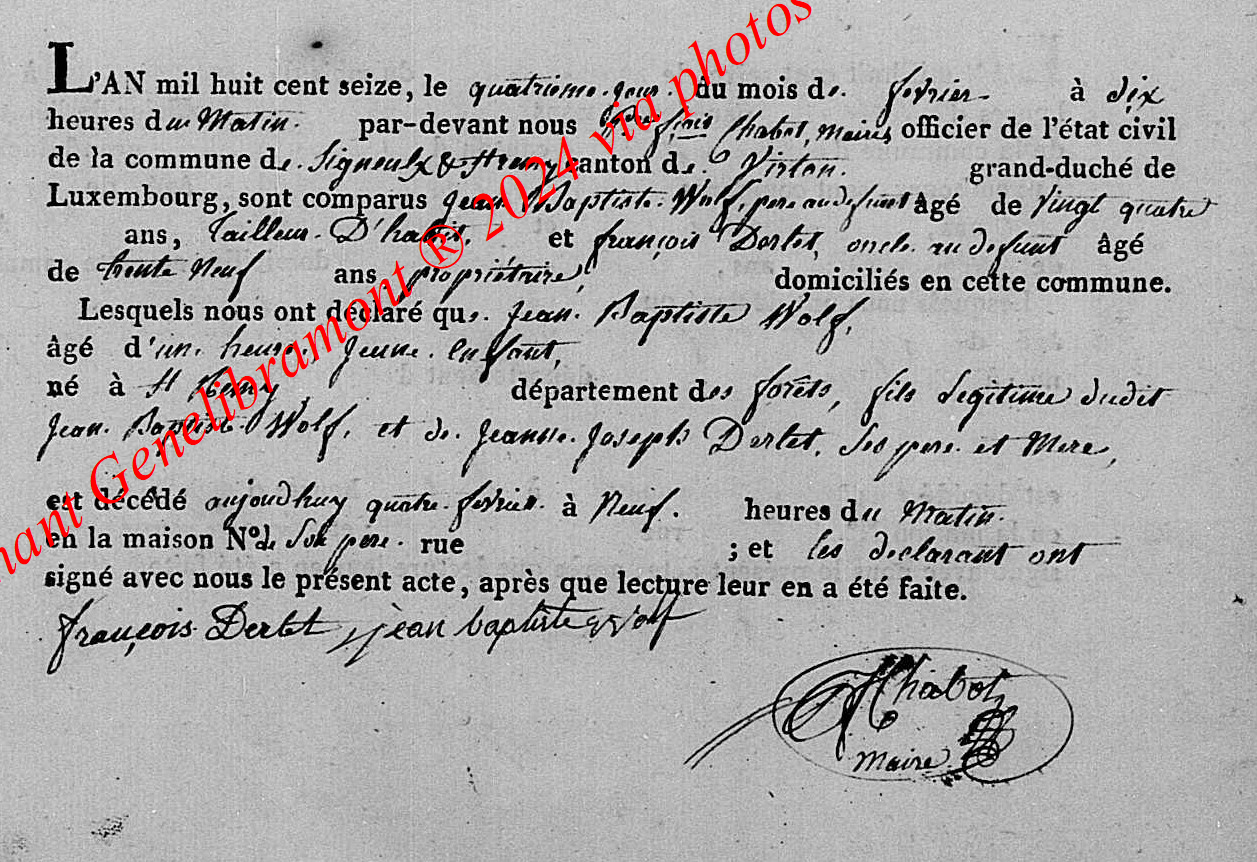 L'AN mil huit cent seize, le quatrieme jour du mois de fevrier à dix
heures du Matin. par-devant nous françois Chabot, maire, officier de l'état civil
de la commune de Signeulx & St Remy canton de Virton. grand-duché de
Luxembourg, sont comparus Jean Baptiste Wolf, pere au defunt âgé de vingt quatre
ans, tailleur D'habit, et françois Dertet, oncle au defunt âgé
de trente Neuf ans propriétaire, domiciliés en cette commune.
Lesquels nous ont déclaré que Jean Baptiste Wolf,
âgé d'un heure, jeune enfant,
né à St Remy département des forêts, fils Legitime dudit
Jean Baptiste Wolf, et de Jeanne Joseph Dertet, ses pere et Mere,
est décédé aujoudhuy quatre fevrier à Neuf. heures du Matin.
en la maison N° de Son pere rue ; et les declarant ont
signé avec nous le présent acte, après que lecture leur en a été faite.
françois Dertet jean baptiste Wolf
Chabot
maire
Genelibramont ® 2024 via photos